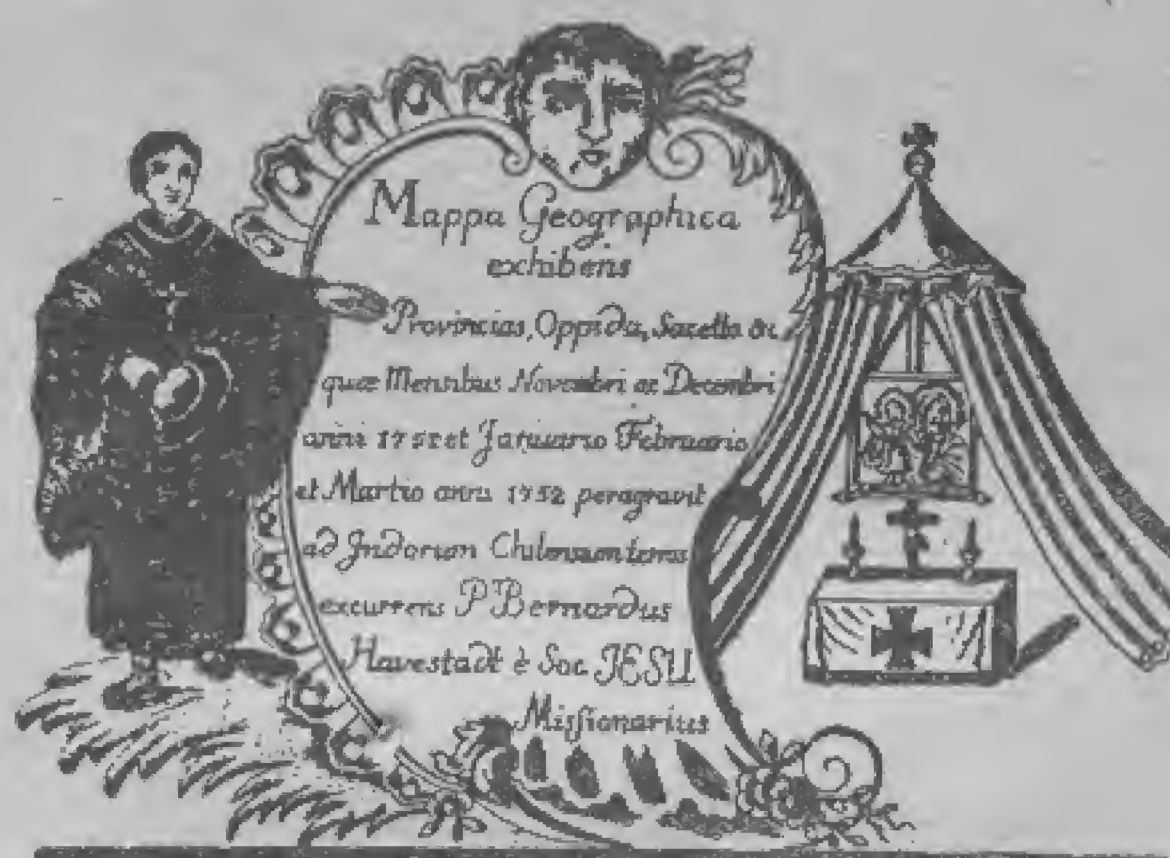 Mappa Geographica
exhibens
Provincias, Oppida, Sacella &c
quæ Mensibus Novembri ac Decembri
anni 1751 et Januario Februario
et Martio anni 1752 peragravit
ad Indorum Chilensium terras
excurrens P Bernardus
Havestadt è Soc JESU
Missionarius